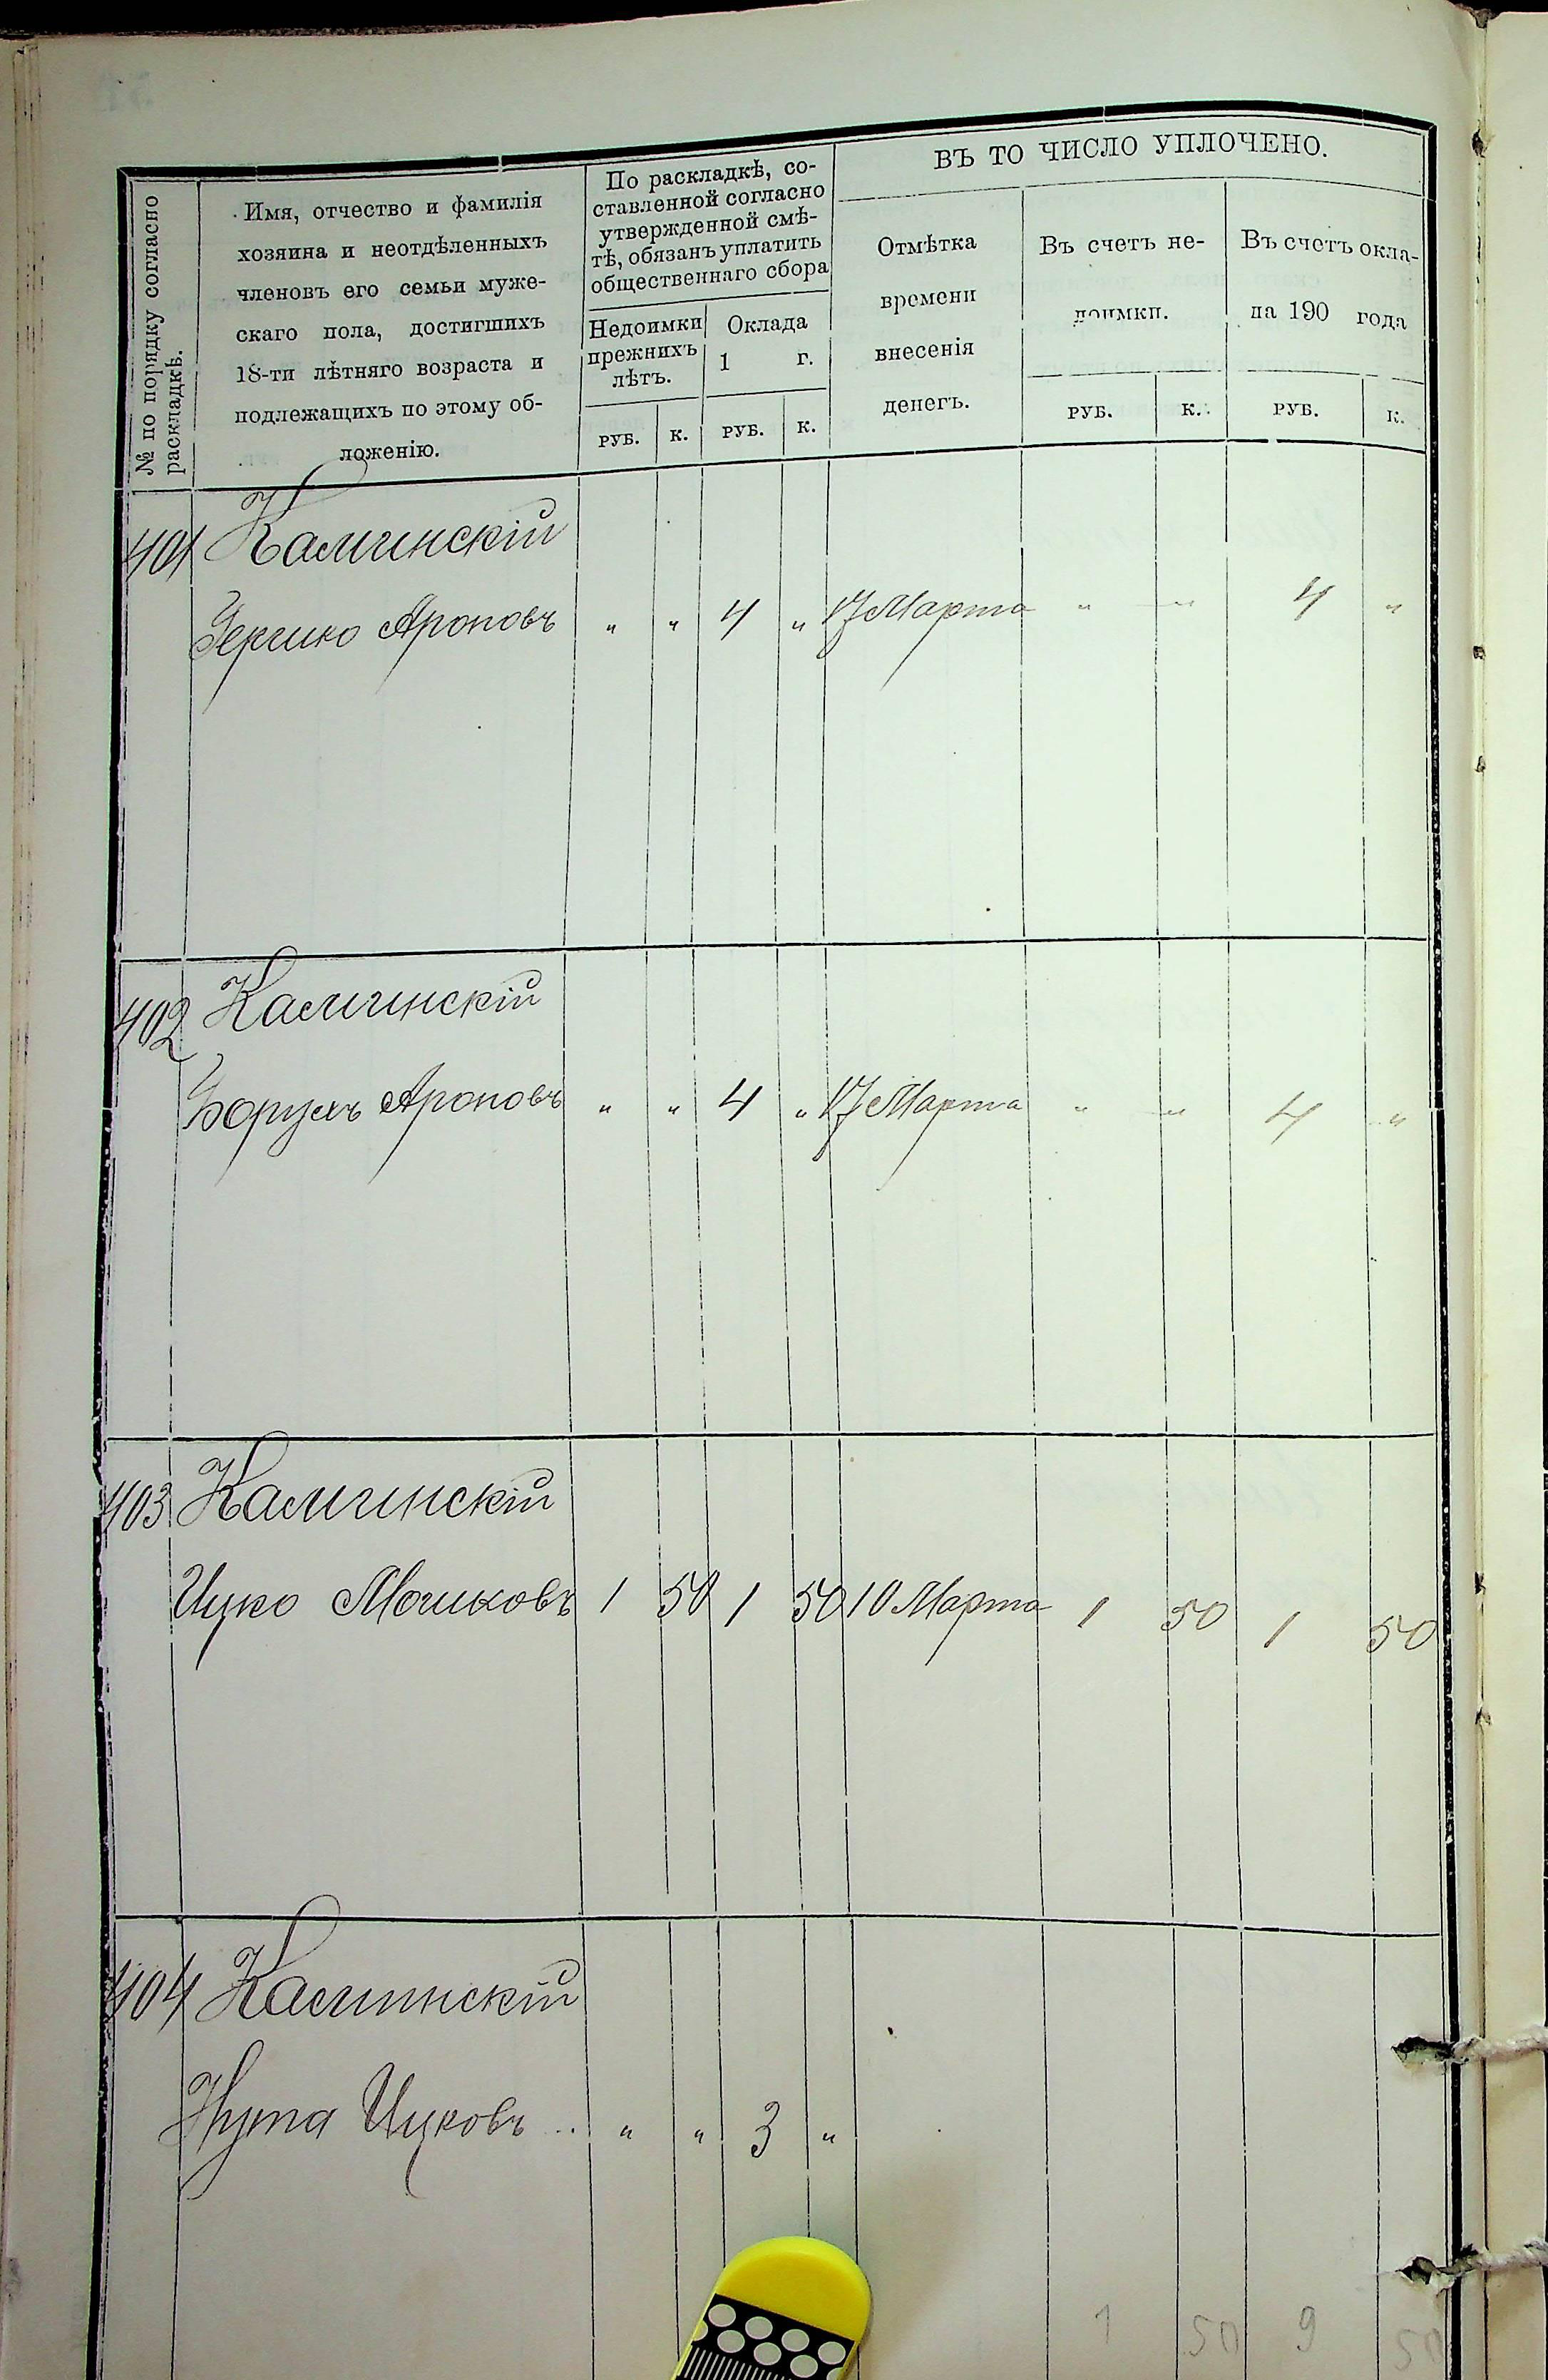 № по порядку согласно
раскладкѣ.
Имя, отчество и фамилія
хозяина и неотдѣленныхъ
членовъ его семьи муже-
скаго пола, достигшихъ
18-ти лѣтняго возраста и
подлежащихъ по этому об-
ложенію.
По раскладкѣ, со-
ставленной согласно
утвержденной смѣ-
тѣ, обязанъ уплатить
общественнаго сбора
Недоимки
прежнихъ
лѣтъ.
Оклада
1 г.
РУБ. К. РУБ. К.
ВЪ ТО ЧИСЛО УПЛОЧЕНО.
Отмѣтка
времени
внесенія
денегъ.
Въ счетъ не-
доимки.
Въ счетъ окла-
да 190 года
РУБ. К. РУБ. К.
401 Каминскій
Гершко Ароновъ " " 4 " 17 Марта " " 4 "
402 Каминскій
Борухъ Ароновъ " " 4 " 17 Марта " " 4 "
403 Каминскій
Ицко Мошковъ 1 50 1 50 10 Марта 1 50 1 50
404 Каминскій
Нута Ицковъ " " 3 "
1 50 9 50